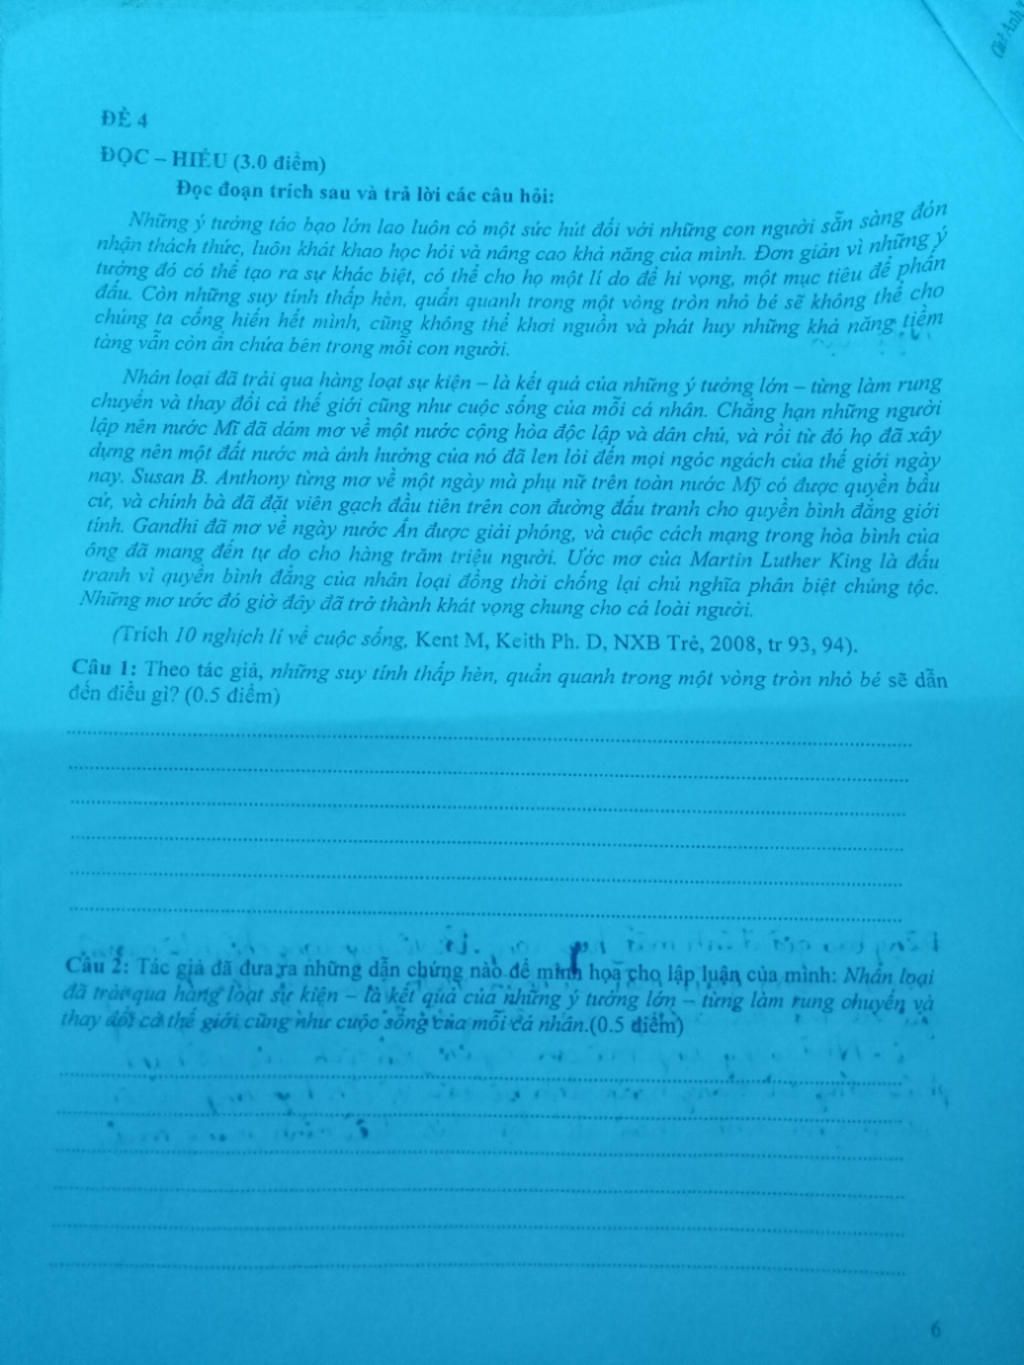 ĐỀ 4
ĐỌC – HIỂU (3.0 điểm)
Đọc đoạn trích sau và trả lời các câu hỏi:
Những ý tưởng táo bạo lớn lao luôn có một sức hút đối với những con người sẵn sàng đón
nhận thách thức, luôn khát khao học hỏi và nâng cao khả năng của mình. Đơn giản vì những ý
tưởng đó có thể tạo ra sự khác biệt, có thể cho họ một lí do để hi vọng, một mục tiêu để phấn
đấu. Còn những suy tính thấp hèn, quẩn quanh trong một vòng tròn nhỏ bé sẽ không thể cho
chúng ta cống hiến hết mình, cũng không thể khơi nguồn và phát huy những khả năng tiềm
tàng vẫn còn ẩn chứa bên trong mỗi con người.
Nhân loại đã trải qua hàng loạt sự kiện – là kết quả của những ý tưởng lớn – từng làm rung
chuyển và thay đổi cả thế giới cũng như cuộc sống của mỗi cá nhân. Chẳng hạn những người
lập nên nước Mĩ đã dám mơ về một nước cộng hòa độc lập và dân chủ, và rồi từ đó họ đã xây
dựng nên một đất nước mà ảnh hưởng của nó đã len lỏi đến mọi ngóc ngách của thế giới ngày
nay. Susan B. Anthony từng mơ về một ngày mà phụ nữ trên toàn nước Mỹ có được quyền bầu
cử, và chính bà đã đặt viên gạch đầu tiên trên con đường đấu tranh cho quyền bình đẳng giới
tính. Gandhi đã mơ về ngày nước Ấn được giải phóng, và cuộc cách mạng trong hòa bình của
ông đã mang đến tự do cho hàng trăm triệu người. Ước mơ của Martin Luther King là đấu
tranh vì quyền bình đẳng của nhân loại đồng thời chống lại chủ nghĩa phân biệt chủng tộc.
Những mơ ước đó giờ đây đã trở thành khát vọng chung cho cả loài người.
(Trích 10 nghịch lí về cuộc sống, Kent M, Keith Ph. D, NXB Trẻ, 2008, tr 93, 94).
Câu 1: Theo tác giả, những suy tính thấp hèn, quẩn quanh trong một vòng tròn nhỏ bé sẽ dẫn
đến điều gì? (0.5 điểm)
Câu 2: Tác giả đã đưa ra những dẫn chứng nào để minh họa cho lập luận của mình: Nhân loại
đã trải qua hàng loạt sự kiện – là kết quả của những ý tưởng lớn – từng làm rung chuyển và
thay đổi cả thế giới cũng như cuộc sống của mỗi cá nhân.(0.5 điểm)
6